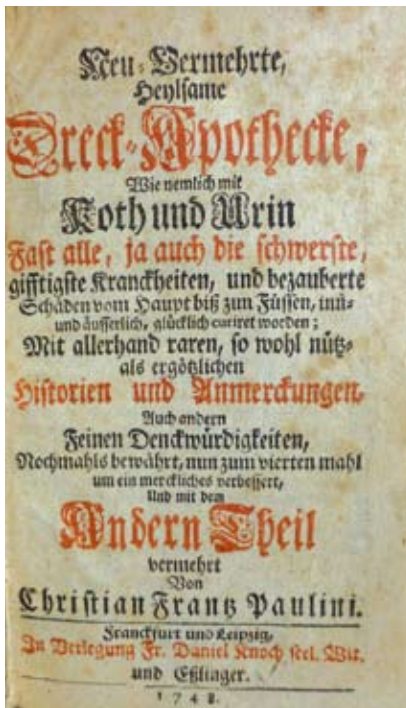 Neu-Vermehrte,
Heylsame
Dreck-Apothecke,
Wie nemlich mit
Koth und Urin
Fast alle, ja auch die schwerste,
gifftigste Kranckheiten, und bezauberte
Schäden vom Haupt biß zun Füssen, inn-
und äusserlich, glücklich curiret worden;
Mit allerhand raren, so wohl nütz-
als ergötzlichen
Historien und Anmerckungen,
Auch andern
Feinen Denckwürdigkeiten,
Nochmahls bewährt, nun zum vierten mahl
um ein merckliches verbessert,
Und mit dem
Andern Theil
vermehrt
Von
Christian Frantz Paulini.
Franckfurt und Leipzig,
In Verlegung Fr. Daniel Knoch seel. Wit.
und Eßlinger.
1748.